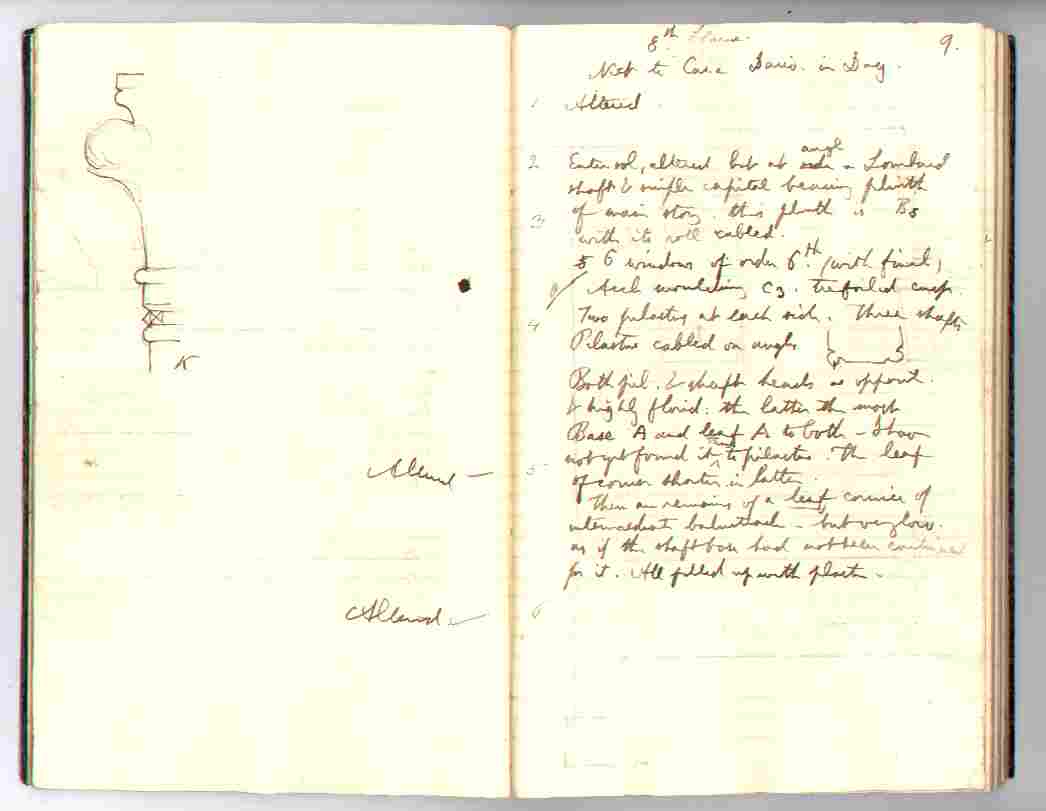 K
Altered
Altered
8th House.
9.
Next to Casa Dario. in Dag.
1 Altered.
angl
2 Entersol, altered but at side a Lombard
shaft & simple capital bearing plinth
3 of main story. this plinth is B5
with its roll cabled.
5 6 windows of order 6th. (with finial)
Arch moulding C3. trefoiled cusp.
4 Two pilasters at each side. Three shafts
Pilaster cabled on angle
Both pil. & shaft heads as opposit.
& highly florid: the latter the most
Base A and leaf A to both - I have
5 not yet found it to pilaster. The leaf
of corner shorter in latter.
There are remains of a leaf cornice of
intermediate balustrade - but very low.
as if the shaft base had not been continued
for it. All filled up with plaster.
6